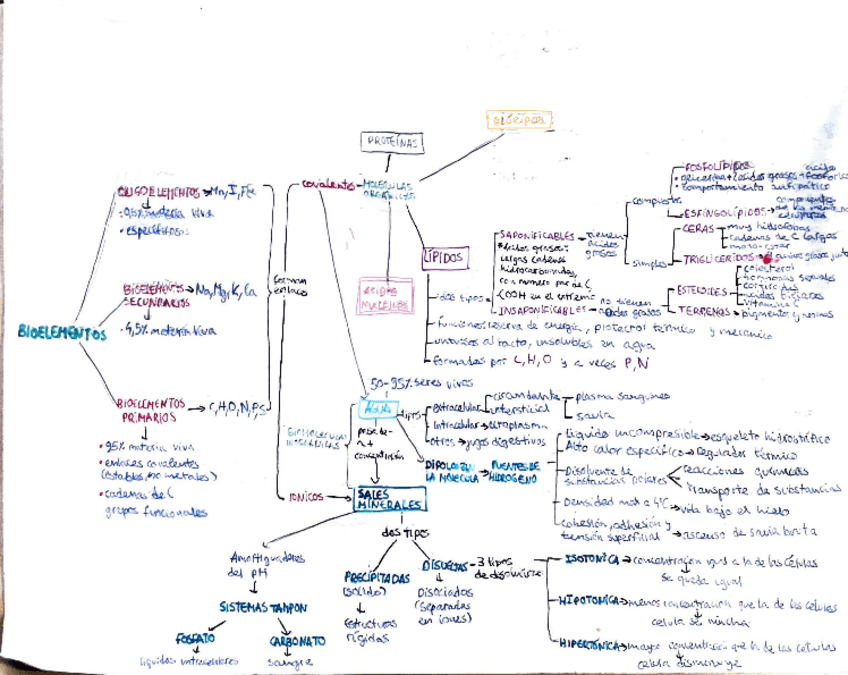 GLÚCIDOS
PROTEÍNAS
covalentes - MOLÉCULAS
ORGÁNICAS
OLIGOELEMENTOS → Mn, I, Fe
• 0,5% materia viva
• específicos
BIOELEMENTOS
SECUNDARIOS → Na, Mg, K, Ca
• 4,5% materia viva
BIOELEMENTOS
BIOELEMENTOS
PRIMARIOS → C, H, O, N, P, S
• 95% materia viva
• enlaces covalentes
(estables, no metales)
• cadenas de C
grupos funcionales
forman
enlaces
ÁCIDOS
NUCLEICOS
LÍPIDOS
dos tipos
SAPONIFICABLES → tienen
ácidos
grasos
ácidos grasos:
largas cadenas
hidrocarbonadas,
con numero par de C
COOH en el extremo
INSAPONIFICABLES → no tienen
ácidos grasos
compuestos
FOSFOLÍPIDOS
• glicerina + ácidos grasos + ácido
fosfórico
• comportamiento anfipático
ESFINGOLÍPIDOS → componentes
simples
CERAS
muy hidrófobas
cadenas de C largas
TRIGLICÉRIDOS
ESTEROIDES
colesterol
hormonas sexuales
vitamina
TERPENOS → pigmentos y aromas
funciones: reserva de energía, protector térmico y mecánico
untuosos al tacto, insolubles en agua
formados por C, H, O y a veces P, N
50-95% seres vivos
BIOMOLÉCULAS
INORGÁNICAS
AGUA
tipos
extracelular
circundante
plasma sanguíneo
savia
intersticial
intracelular → citoplasma
otros → jugos digestivos
concentración
DIPOLO EN
LA MOLÉCULA → PUENTES DE
HIDRÓGENO
Líquido incompresible → esqueleto hidrostático
Alto calor específico → regulador térmico
Disolvente de
sustancias polares
reacciones químicas
transporte de sustancias
Densidad max a 4ºC → vida bajo el hielo
cohesión, adhesión y
tensión superficial → ascenso de savia bruta
IONICOS → SALES
MINERALES
dos tipos
Amortiguadores
del pH
SISTEMAS TAMPON
FOSFATO
líquidos intracelulares
CARBONATO
sangre
PRECIPITADAS
(sólido)
Estructuras
rígidas
DISUELTAS - 3 tipos
de disolución
Disociados
(separadas
en iones)
ISOTONICA → concentracion igual a la de las células
se queda igual
HIPOTONICA → menos concentracion que la de las células
celula se hincha
HIPERTÓNICA → mayor concentración que la de las células
celula disminuye